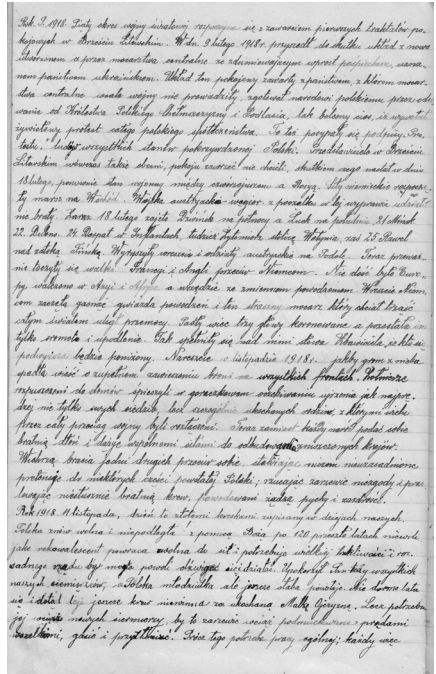 Rok P. 1918. Piąty okres wojny światowej rozpoczyna się z zawarciem pierwszych traktatów po-
kojowych w Brześciu Litewskim. W dn. 9 lutego 1918 r. przyszedł do skutku układ z nowo
utworzonem a przez mocarstwa centralne ze zdumiewającym wprost pośpiechem, uzna-
nem państwem ukraińskiem. Układ ten pokojowy zawarty z państwem, z którem mocar-
stwa centralne wcale wojny nie prowadziły, zgotował narodowi polskiemu przez ode-
wanie od Królestwa Polskiego Chełmszczyzny i Podlasia, tak bolesny cios, iż wywołał
żywiołowy protest całego polskiego społeczeństwa. To też posypały się podpisy Pro-
testu ludzi wszystkich stanów pokrzywdzonej Polski. Przedstawiciele w Brześciu
Litewskim wówczas także strani, pokoju zawrzeć nie chcieli, skutkiem czego nastał w dniu
18 lutego, ponownie stan wojenny między czwórprzymierzem a Rosyą. Siły niemieckie rozpoczę-
ły marsz na Wschód. Wojska austryacko-węgier. z początku w tej wyprawie udziału
nie brały. Zaraz 18 lutego zajęto Dwińsk na północy a Łuck na południu 21 Mińsk
22. Równo. 24 Dorpat w Inflantach, tudzież Żytomierz stolicę Wołynia, zaś 25 Rewel
nad zatoką Fińską. Wyruszyły wreszcie i oddziały austryackie na Podole. Teraz przewa-
żnie toczyły się walki Francyi i Anglii przeciw Niemcom. Nie dość było Euro-
py walczono w Azyi i Afryce a wszędzie ze zmiennem powodzeniem. Wreszcie Niem-
com zaczęła gasnąć gwiazda powodzeń i ten straszny mocarz który chciał trząść
całym światem uległ przemocy. Padły więc trzy głowy koronowane a pozostała im
tylko sromota i upodlenie. Tak spełniły się nad nimi słowa Zbawiciela, iż kto się
podwyższa będzie poniżony. Nareszcie w listopadzie 1918 r. jakby grom z nieba
spadła wieść o zupełnem zawieszeniu broni na wszystkich frontach. Żołnierze
rozpuszczeni do domów śpieszyli w gorączkowem oczekiwaniu ujrzenia jak najprę-
dzej nie tylko swych siedzib, lecz szczególnie ukochanych rodzin, z którymi wielu
przez cały przeciąg wojny byli rozłączeni. Teraz zamiast każdy naród podać sobie
bratnią dłoń i dążyć wspólnemi siłami do odbudowania zniszczonych krajów.
Wichrzą bracia jedni drugich przeciw sobie, stawiając nieraz nieuzasadnione
pretensye do niektórych części powstałej Polski; rzucając zarzewie niezgody i prze-
lewając niesłusznie bratnią krew, powodowani żądzą pychy i zazdrości.
Rok 1918. 11 listopada, dzień to złotemi zgłoskami zapisany w dziejach naszych.
Polska znów wolna i niepodległa z pomocą Bożą po 120 przeszło latach niewoli
jako rekonwalescent powraca zwolna do sił i potrzebuje wielkiej troskliwości i roz-
sądnego rządu by mogła powoli dźwigać się i działać. Upokorzył Pan Bóg wszystkich
naszych ciemięzców, a Polska młodziutka ale jeszcze słaba powstaje. Nie dorosła lata
się i dotąd leje jeszcze krew niewinna za ukochaną Matkę Ojczyznę. Lecz potrzeba
jej mężów nowych szermierzy, by to zarzewie wciąż podniecane pradami
wszelkiemi, gasić i przytłumiać. Prócz tego potrzeba pracy ogólnej; każdy więc